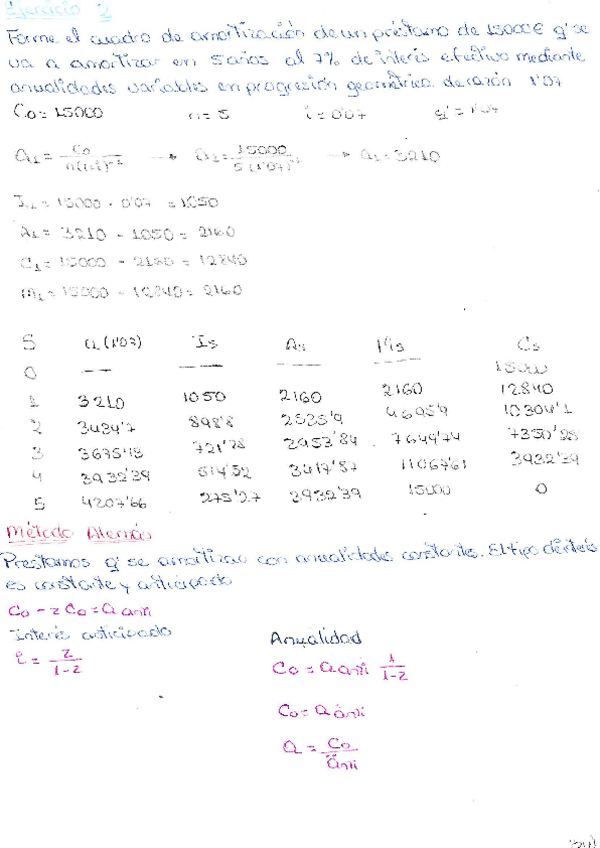 Ejercicio 2
Forme el cuadro de amortización de un préstamo de 15000€ q' se
va a amortizar en 5 años al 7% de interés efectivo mediante
anualidades variables en progresión geométrica de razón 1'07
C₀=15000 n=5 i=0'07 q=1'07
a₁ = C₀ / n(1+i)⁻¹ → a₁ = 15000 / 5(1'07)⁻¹ → a₁=3210
I₁ = 15000 · 0'07 = 1050
A₁ = 3210 - 1050 = 2160
C₁ = 15000 - 2160 = 12840
m₁ = 15000 - 12840 = 2160
S a(1'07) Is As Ms Cs
0 — — — — 15000
1 3210 1050 2160 2160 12840
2 3434'7 898'8 2535'9 4695'9 10304'1
3 3675'13 721'28 2953'84 7649'74 7350'28
4 3932'39 514'52 3417'87 11067'61 3932'39
5 4207'66 275'27 3932'39 15000 0
Método Alemán
Prestamos q' se amortizan con anualidades constantes. El tipo de interés
es constante y anticipado
C₀ - z C₀ = a an¬i
Interés anticipado Anualidad
i = z / 1-z C₀ = a an¬i 1 / 1-z
C₀ = a än¬i
a = C₀ / än¬i